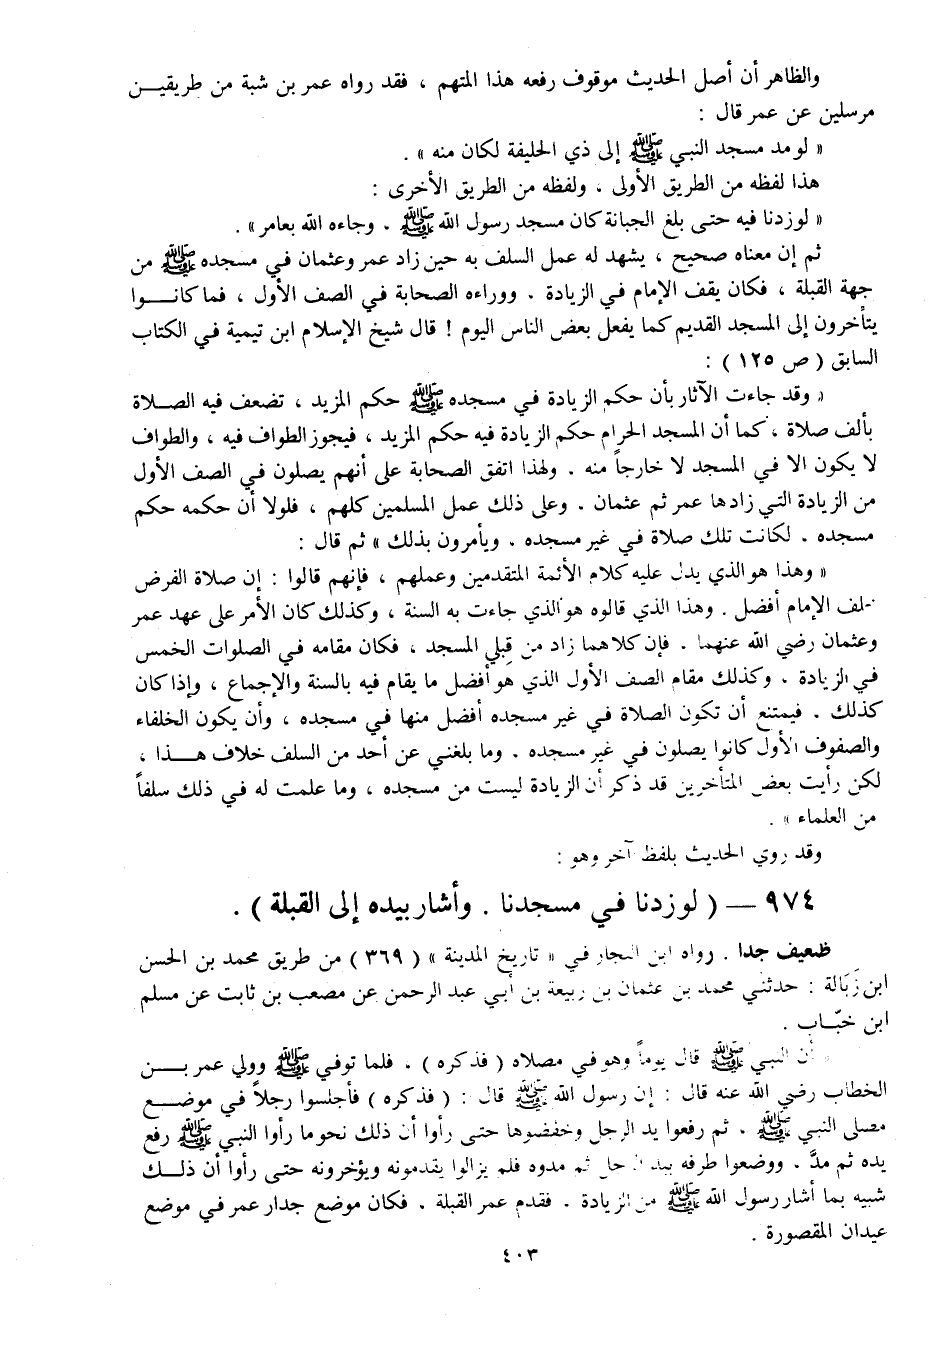 والظاهر أن أصل الحديث موقوف رفعه هذا المتهم ، فقد رواه عمر بن شبة من طريقيــن
مرسلين عن عمر قال :
« لو مد مسجد النبي ﷺ إلى ذي الحليفة لكان منه » .
هذا لفظه من الطريق الأولى ، ولفظه من الطريق الأخرى :
« لو زدنا فيه حتى بلغ الجبانة كان مسجد رسول الله ﷺ ، وجاءه الله بعامر » .
ثم إن معناه صحيح ، يشهد له عمل السلف به حين زاد عمر وعثمان في مسجده ﷺ من
جهة القبلة ، فكان يقف الإمام في الزيادة ، ووراءه الصحابة في الصف الأول ، فما كانــوا
يتأخرون إلى المسجد القديم كما يفعل بعض الناس اليوم ! قال شيخ الإسلام ابن تيمية في الكتاب
السابق ( ص ١٢٥ ) :
« وقد جاءت الآثار بأن حكم الزيادة في مسجده ﷺ حكم المزيد ، تضعف فيه الصـلاة
بألف صلاة ، كما أن المسجد الحرام حكم الزيادة فيه حكم المزيد ، فيجوز الطواف فيه ، والطواف
لا يكون الا في المسجد لا خارجاً منه . ولهذا اتفق الصحابة على أنهم يصلون في الصف الأول
من الزيادة التي زادها عمر ثم عثمان ، وعلى ذلك عمل المسلمين كلهم ، فلولا أن حكمه حكم
مسجده ، لكانت تلك صلاة في غير مسجده ، ويأمرون بذلك » ثم قال :
« وهذا هو الذي يدل عليه كلام الأئمة المتقدمين وعملهم ، فإنهم قالوا : إن صلاة الفرض
خلف الإمام أفضل . وهذا الذي قالوه هو الذي جاءت به السنة ، وكذلك كان الأمر على عهد عمر
وعثمان رضي الله عنهما . فإن كلاهما زاد من قِبلي المسجد ، فكان مقامه في الصلوات الخمس
في الزيادة ، وكذلك مقام الصف الأول الذي هو أفضل ما يقام فيه بالسنة والإجماع ، وإذا كان
كذلك . فيمتنع أن تكون الصلاة في غير مسجده أفضل منها في مسجده ، وأن يكون الخلفاء
والصفوف الأول كانوا يصلون في غير مسجده . وما بلغني عن أحد من السلف خلاف هــذا ،
لكن رأيت بعض المتأخرين قد ذكر أن الزيادة ليست من مسجده ، وما علمت له في ذلك سلفاً
من العلماء » .
وقد روي الحديث بلفظ آخر وهو :
٩٧٤ — ( لو زدنا في مسجدنا . وأشار بيده إلى القبلة ) .
ضعيف جدا . رواه ابن النجار في « تاريخ المدينة » ( ٣٦٩ ) من طريق محمد بن الحسن
ابن زَبَالة : حدثني محمد بن عثمان بن ربيعة بن أبي عبد الرحمن عن مصعب بن ثابت عن مسلم
ابن خبّـاب .
« أن النبي ﷺ قال يوماً وهو في مصلاه ( فذكره ) . فلما توفي ﷺ وولي عمر بــن
الخطاب رضي الله عنه قال : إن رسول الله ﷺ قال : ( فذكره ) فأجلسوا رجلاً في موضـع
مصلى النبي ﷺ ، ثم رفعوا يد الرجل وخفضوها حتى رأوا أن ذلك نحو ما رأوا النبي ﷺ رفع
يده ثم مدَّ ، ووضعوا طرفه بيد الرجل ثم مدوه فلم يزالوا يقدمونه ويؤخرونه حتى رأوا أن ذلــك
شبيه بما أشار رسول الله ﷺ من الزيادة . فقدم عمر القبلة ، فكان موضع جدار عمر في موضع
عيدان المقصورة .
٤٠٣